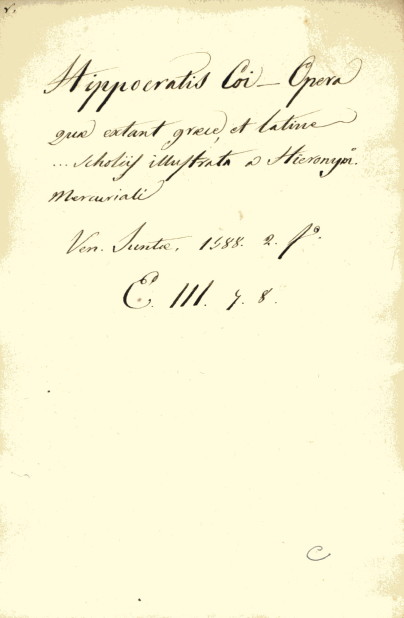 v.
Hippocratis Coi — Opera
quæ extant græcè, et latine
... scholijs illustrata a Hieronym.
Mercuriali
Ven. Juntæ. 1588. 2. fº.
E. III. 7. 8.
C